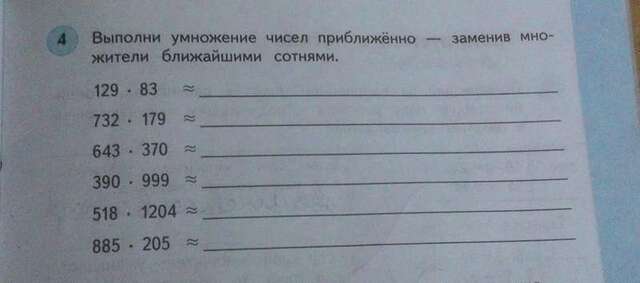 4 Выполни умножение чисел приближённо — заменив мно-
жители ближайшими сотнями.
129 · 83 ≈
732 · 179 ≈
643 · 370 ≈
390 · 999 ≈
518 · 1204 ≈
885 · 205 ≈